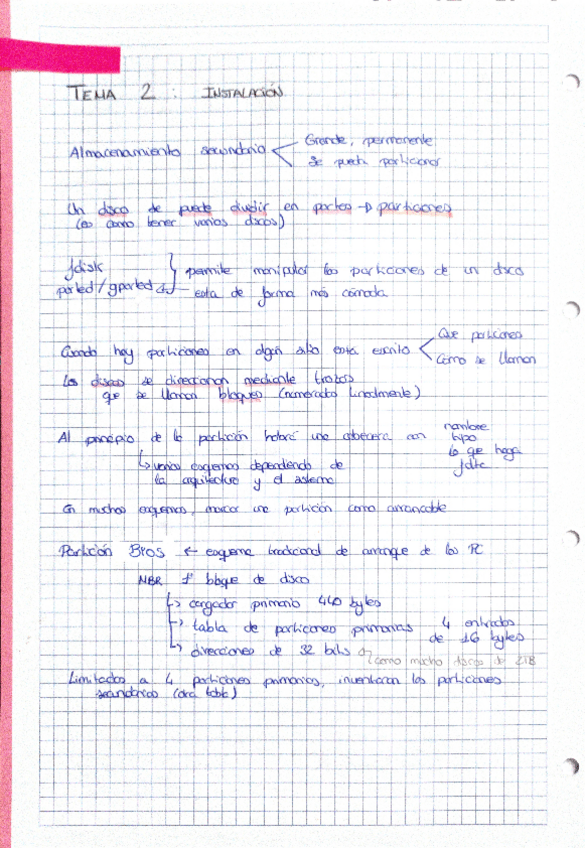 TEMA 2 : INSTALACIÓN
Almacenamiento secundario < Grande, permanente
Se puede particionar
Un disco se puede dividir en partes → particiones
(es como tener varios discos)
fdisk } permite manipular las particiones de un disco
parted / gparted ← esta de forma más cómoda
Cuando hay particiones en algún sitio está escrito < Que particiones
Cómo se llaman
Los discos se direccionan mediante trozos
que se llaman bloques (numerados linealmente)
Al principio de la partición habrá una cabecera con nombre
tipo
lo que haga
falta
↳ varios esquemas dependiendo de
la arquitectura y el sistema
En muchos esquemas, marcar una partición como arrancable
Partición BIOS ← esquema tradicional de arranque de los PC
MBR 1º bloque de disco
↳ cargador primario 440 bytes
↳ tabla de particiones primarias 4 entradas
de 16 bytes
↳ direcciones de 32 bits
como mucho discos de 2TB
Limitados a 4 particiones primarias, inventaron las particiones
secundarias (otra tabla)